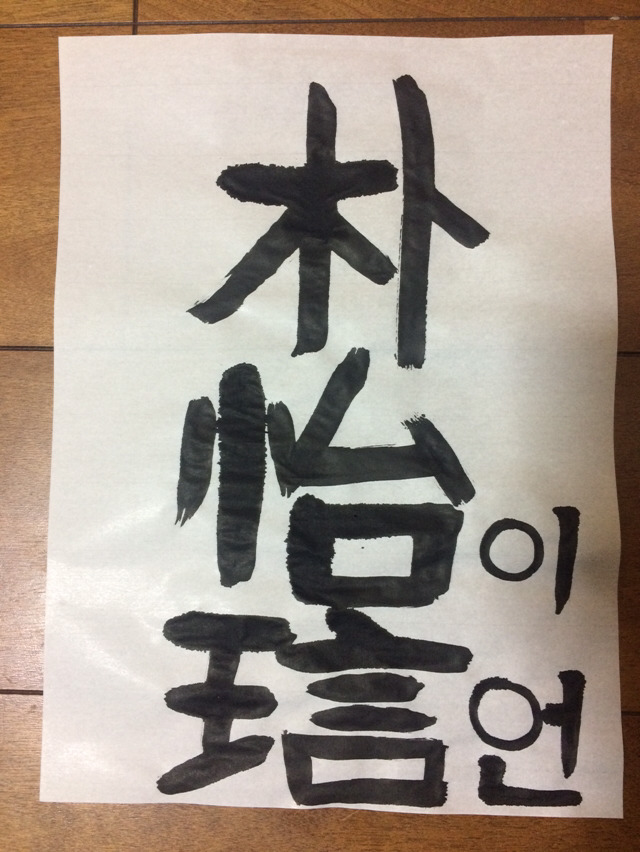 朴怡琂
이언